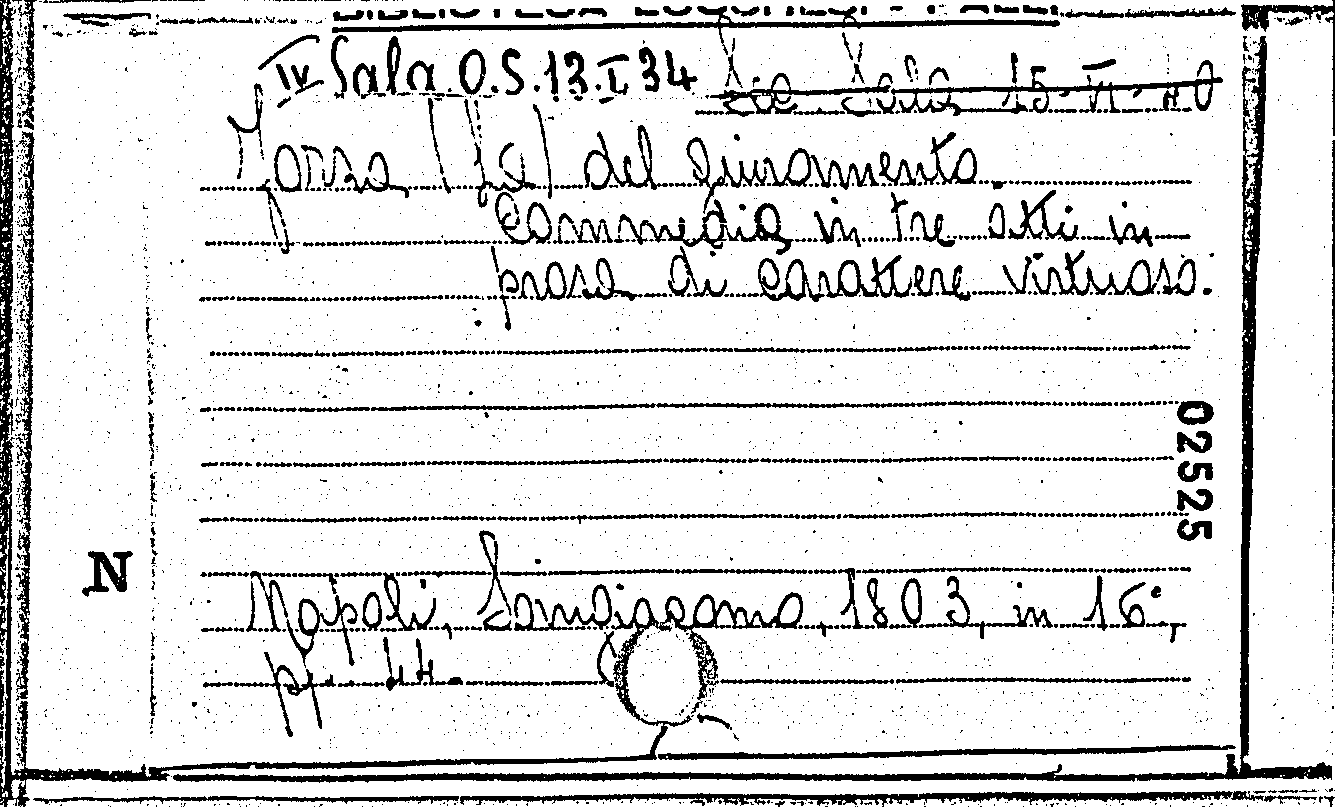 BIBLIOTECA LUCCHESI - PALLI
IV Sala O.S.13.I.34 Sala 15-VI-40
Forza (La) del giuramento.
Commedia in tre atti in
prosa di carattere virtuoso.
02525
N
Napoli, Sangiacomo, 1803, in 16°,
pp. 44.